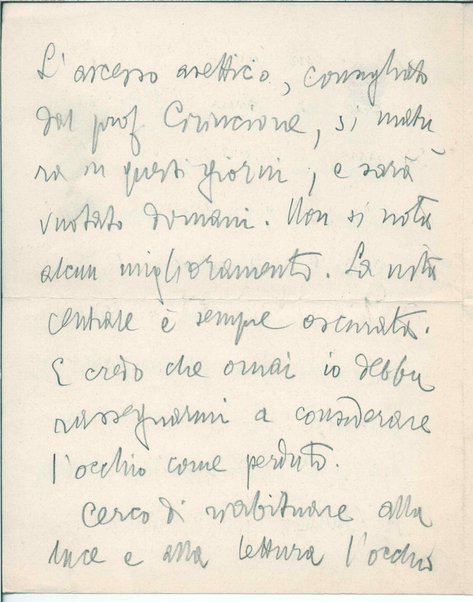 L'ascesso asettico, consigliato
dal prof Cirincione, si matu
ra in questi giorni, e sarà
vuotato domani. Non si nota
alcun miglioramento. La vista
centrale è sempre oscurata.
E credo che omai io debba
rassegnarmi a considerare
l'occhio come perduto.
Cerco di riabituare alla
luce e alla lettura l'occhio